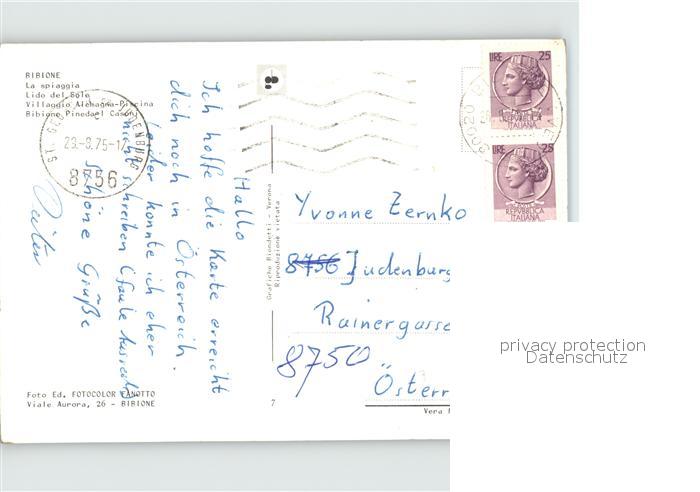 BIBIONE
La spiaggia
Lido del Sole
Villaggio Alemagna-Piscina
Bibione Pineda(el Cason)
23.-8.75-17
8756
Hallo
Ich hoffe die Karte erreicht
dich noch in Österreich.
Leider konnte ich eher
nicht schreiben (faule Ausrede)
schöne Grüße
Foto Ed. FOTOCOLOR ZANOTTO
Viale Aurora, 26 - BIBIONE
7
Grafiche Biondetti - Verona
Riproduzione vietata
LIRE 25
REPVBBLICA
ITALIANA
LIRE 25
REPVBBLICA
ITALIANA
30020
Yvonne Zernko
8756 Judenburg
Rainergasse
8750
Österr
Vera
privacy protection
Datenschutz